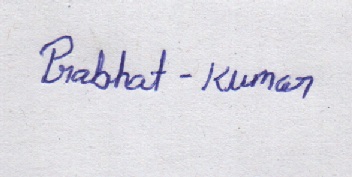 Prabhat - Kumar